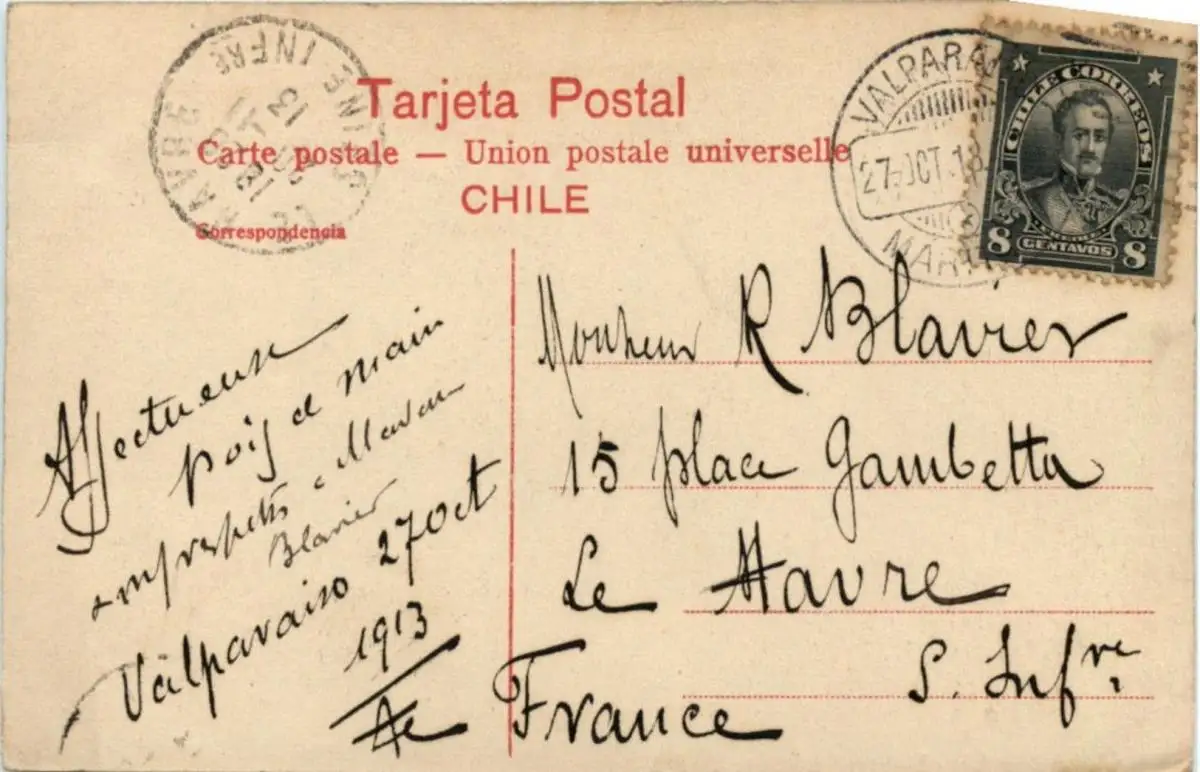 Tarjeta Postal
Carte postale — Union postale universelle
CHILE
Correspondencia
LE HAVRE
SNE INFRE
VALPARA
27 OCT 13
MAR
CHILE CORREOS
FREIRE
8 CENTAVOS 8
Affectueuse
poig de main
respects a Madam
Blavier
Valparaiso 27 Oct
1913
Monsieur R Blavier
15 place Gambetta
Le Havre
S. Infre
France